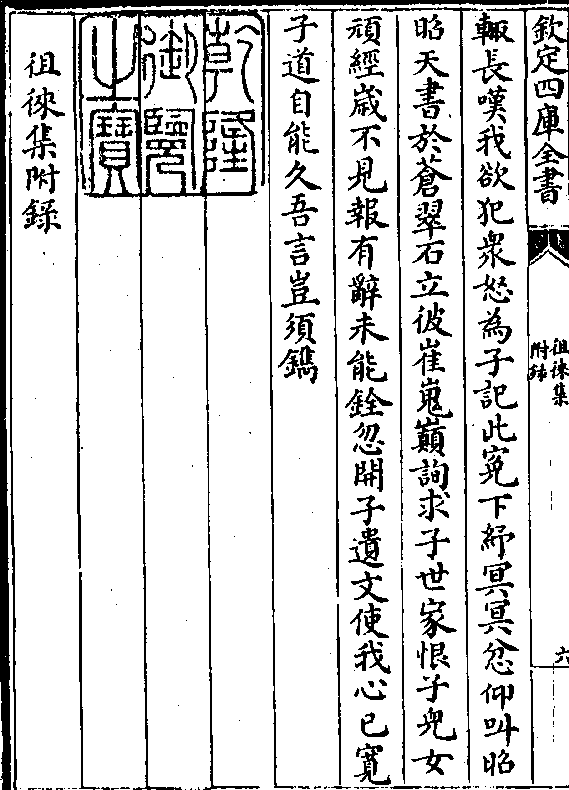 欽定四庫全書
徂徠集
附錄
六
輒長嘆我欲犯衆怒為子記此寃下紓冥冥忿仰叫昭
昭天書於蒼翠石立彼崔嵬巔詢求子世家恨子兒女
頑經嵗不見報有辭未能銓忽開子遺文使我心已寛
子道自能久吾言豈須鐫
乾隆
御覽
之寶
徂徠集附錄